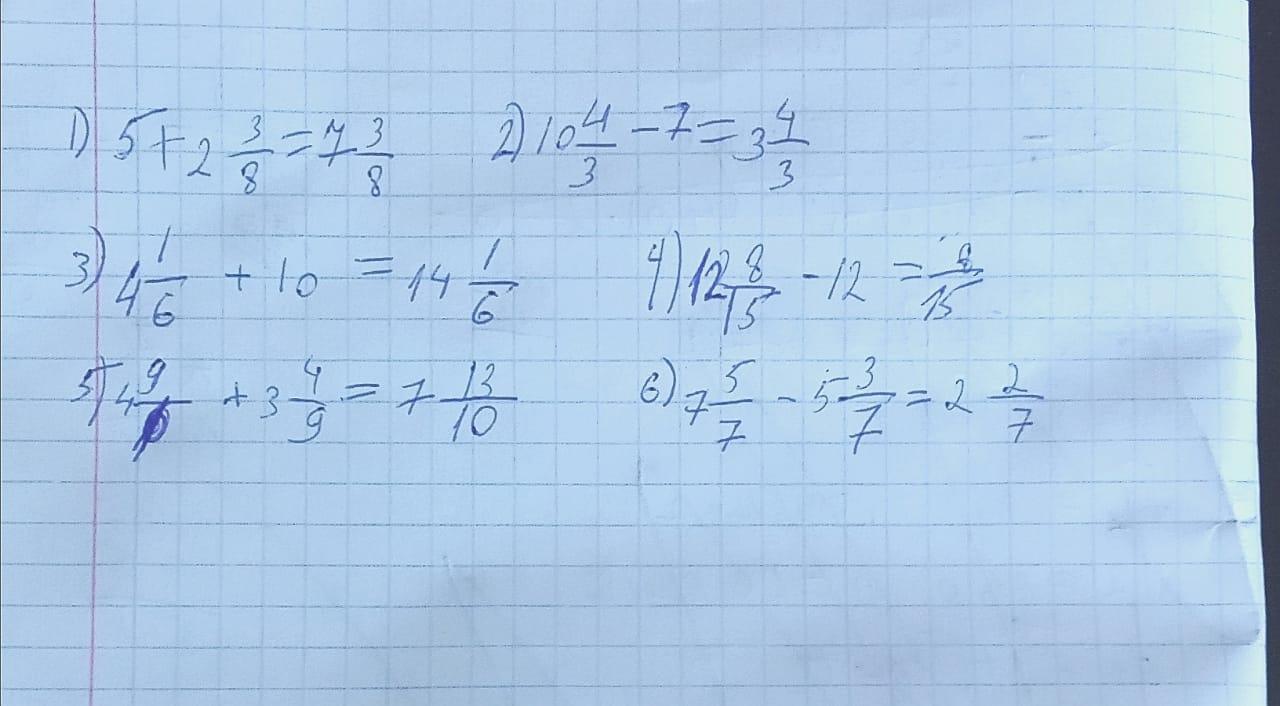 1) 5 + 2 3/8 = 7 3/8 2) 10 4/3 - 7 = 3 4/3
3) 4 1/6 + 10 = 14 1/6 4) 12 8/15 - 12 = 8/15
5) 4 9/ + 3 4/9 = 7 13/10 6) 7 5/7 - 5 3/7 = 2 2/7